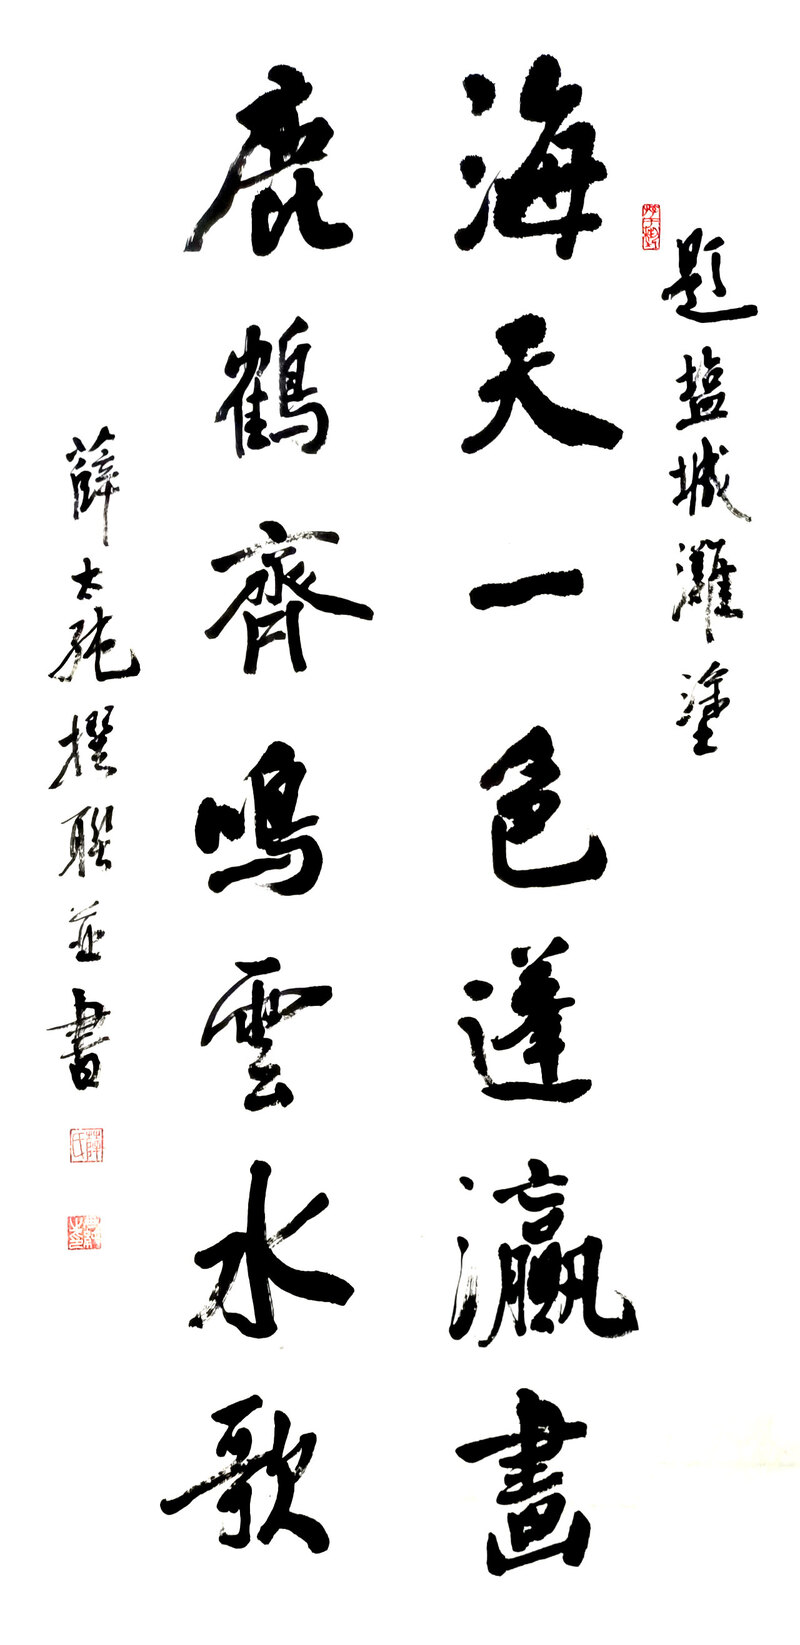 題盐城灘塗
海天一色蓬瀛畫
鹿鶴齊鳴雲水歌
薛太純撰聯並書